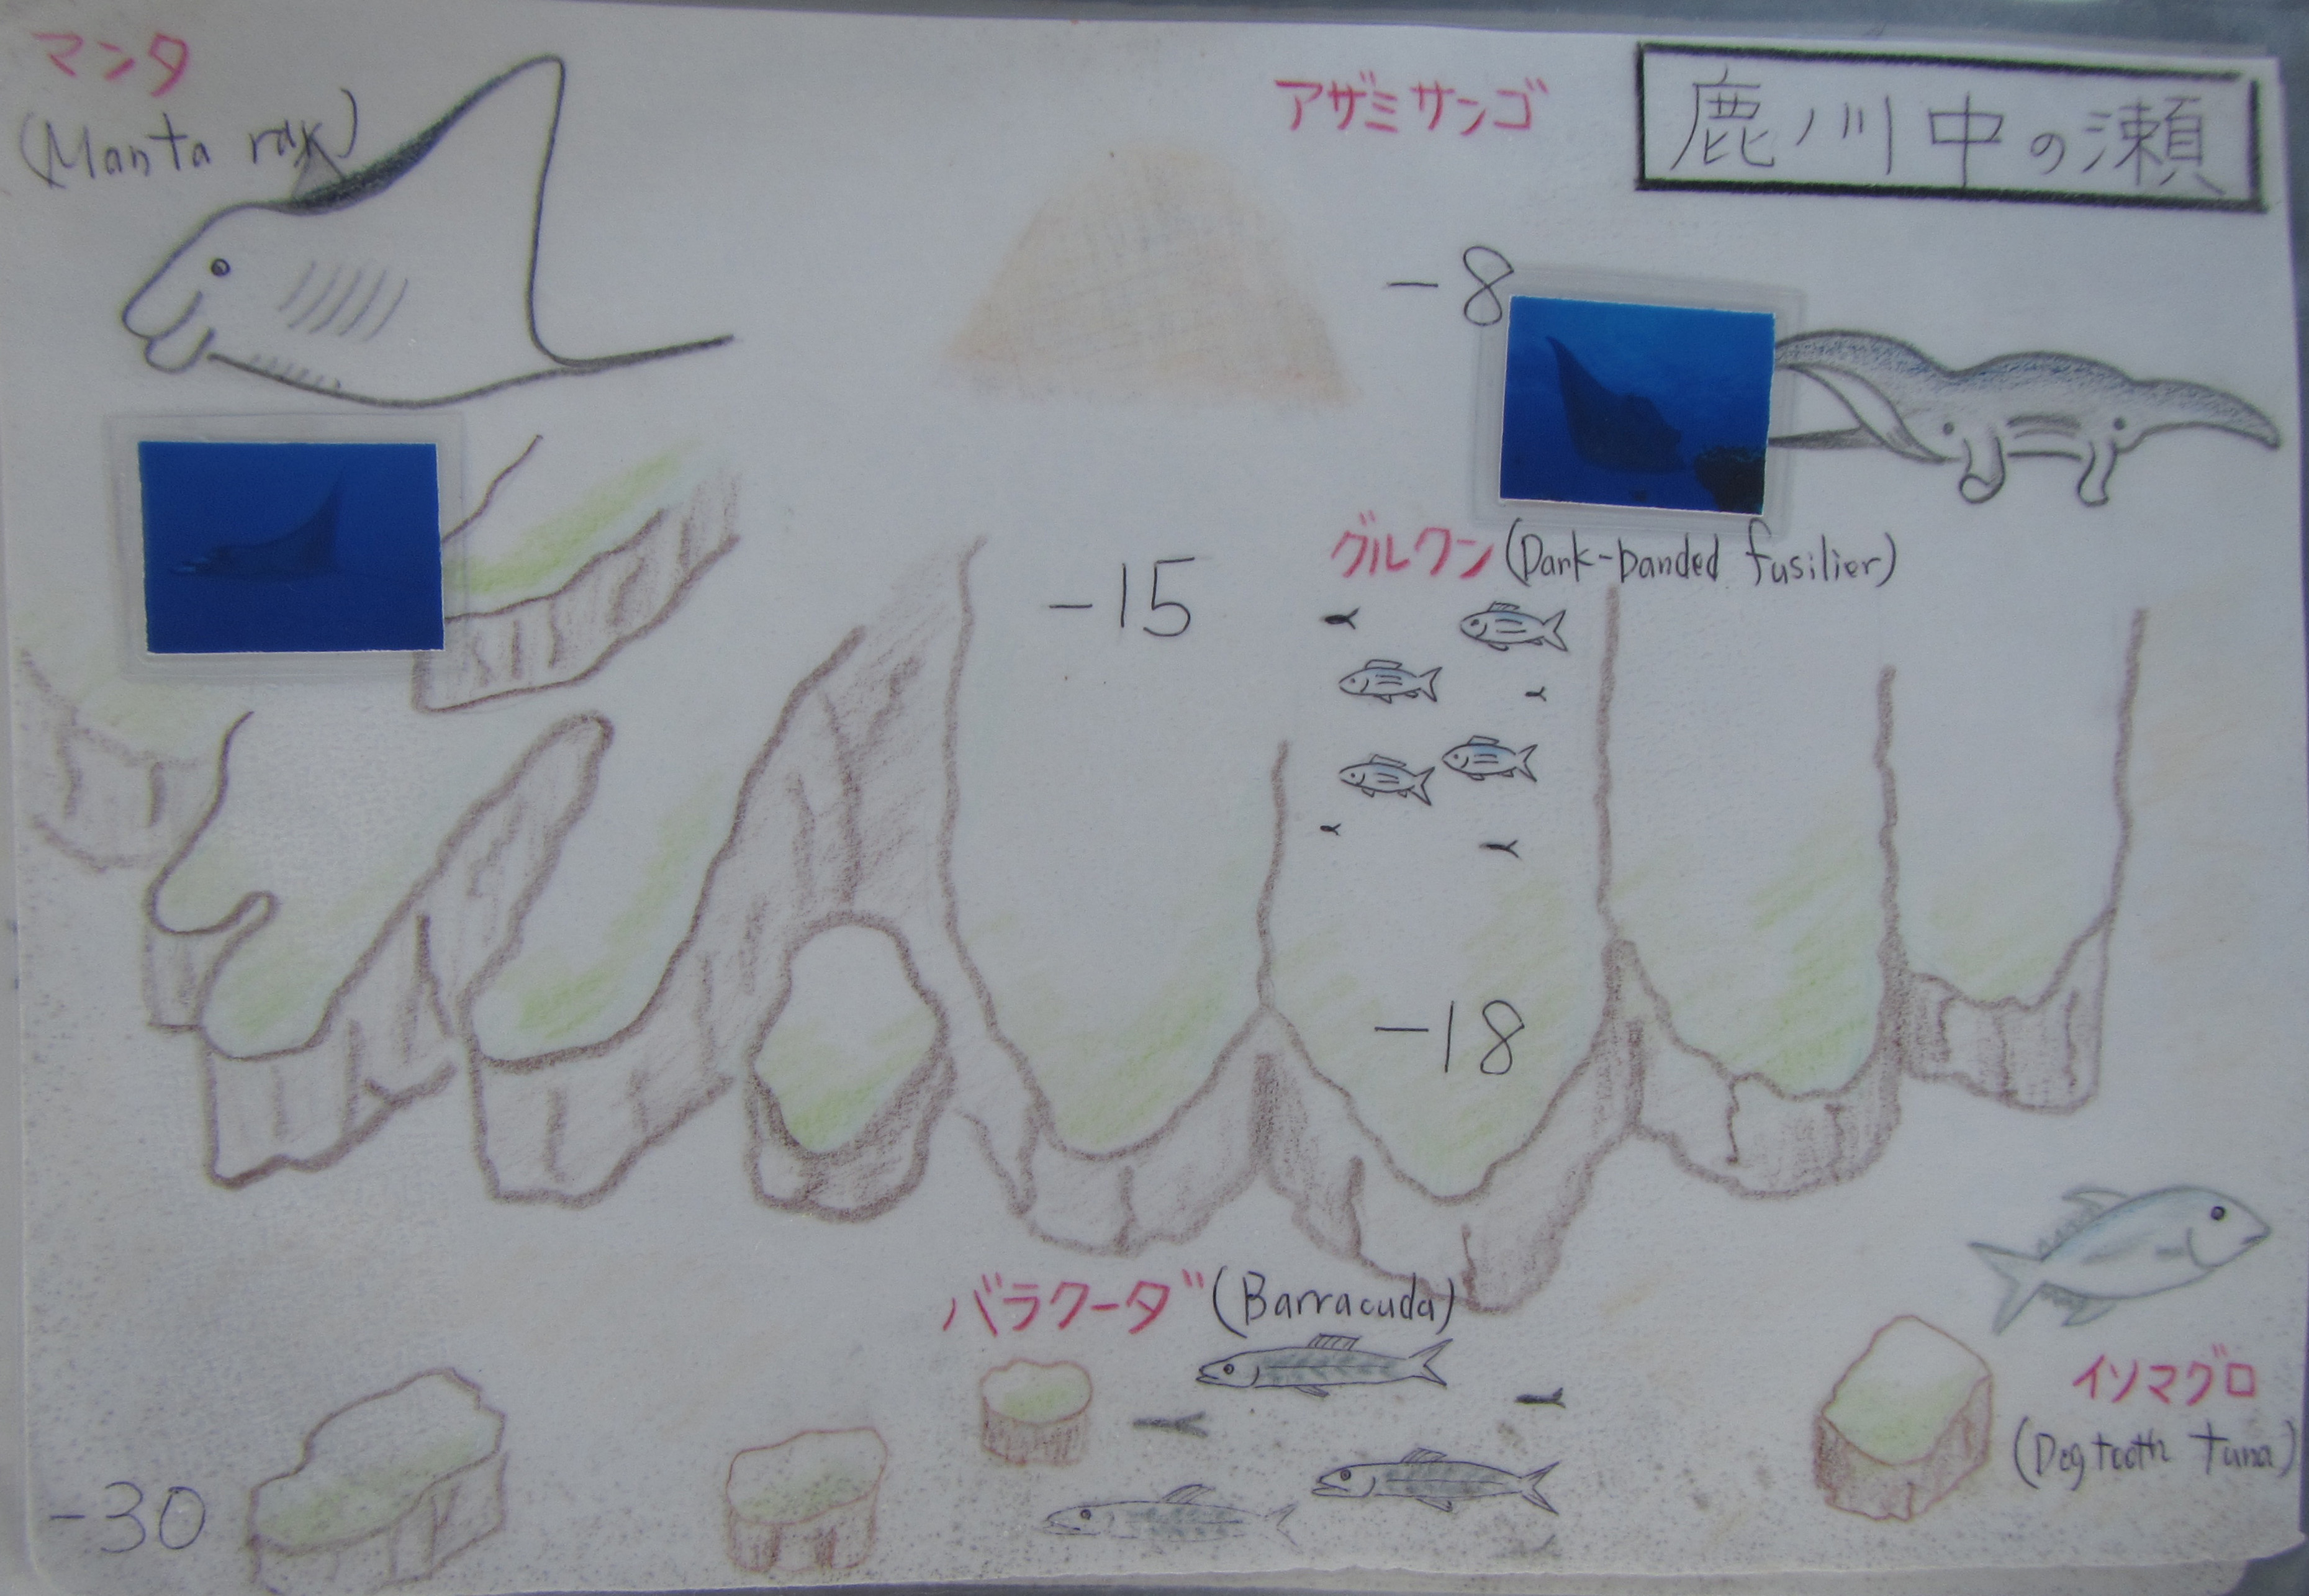 マンタ
(Manta ray)
アザミサンゴ
鹿川中の瀬
-8
グルクン (Dark-banded fusilier)
-15
-18
バラクーダ (Barracuda)
イソマグロ
(Dogtooth tuna)
-30